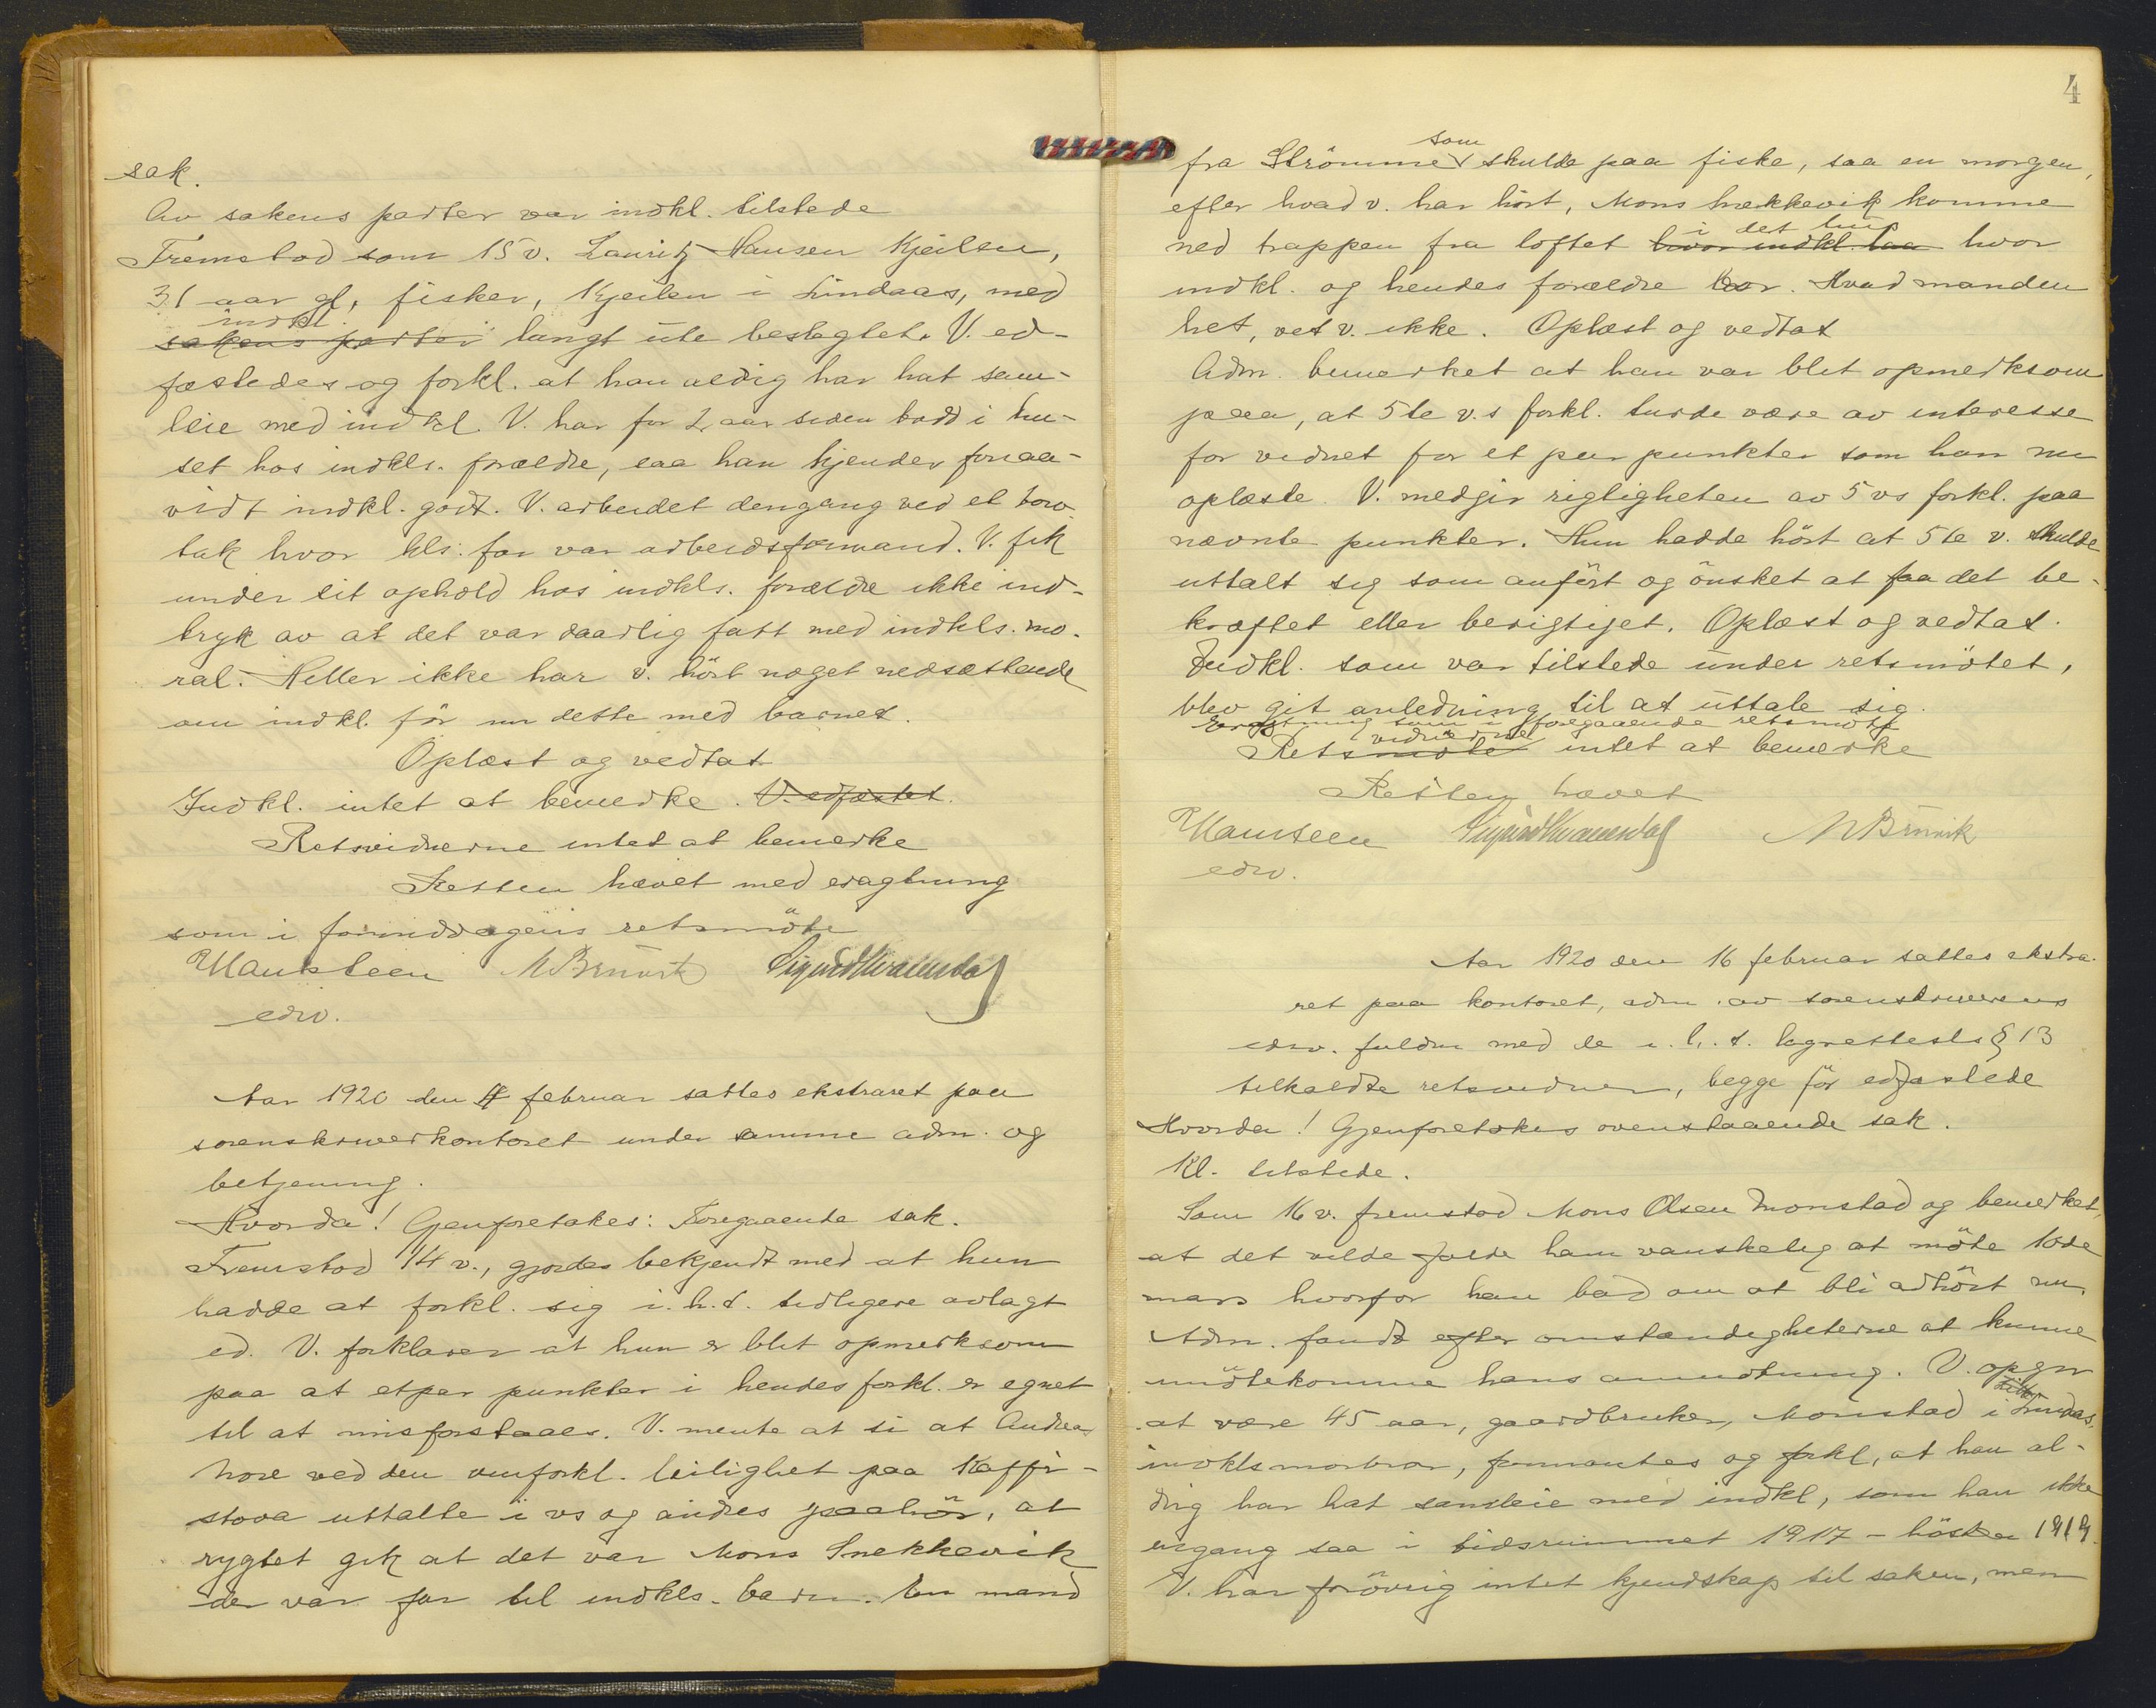 sak.
Av sakens parter var indkl. tilstede
Fremstod som 15 v. Lauritz Hansen Kjeilen,
31 aar gl, fisker, Kjeilen i Lindaas, med
indkl.
sakens parter langt ute beslegtet. V. ed-
fæstedes og forkl. at han aldrig har hat sam-
leie med indkl. V. har for 2 aar siden bodd i hu-
set hos indkls. forældre, saa han kjender forsaa-
vidt indkl. godt. V. arbeidet dengang ved et torv-
tak hvor kls. far var arbeidsformand. V. fik
under sit ophold hos indkls. forældre ikke ind-
tryk av at det var daarlig fatt med indkls. mo-
ral. Heller ikke har v. hört noget nedsættende
om indkl. för nu dette med barnet.
Oplæst og vedtat
Indkl. intet at bemerke. V. edfæstet.
Retsvidnerne intet at bemerke
Retten hævet med eragtning
som i formiddagens retsmöte
Hansteen M Brunvik Sigurd Kvalendal
edsv.
Aar 1920 den 4 februar sattes ekstraret paa
sorenskriverkontoret under samme adm. og
betjening.
Hvorda! Gjenforetakes: Foregaaende sak.
Fremstod 14 v., gjordes bekjendt med at hun
hadde at forkl. sig i. h. t. tidligere avlagt
ed. V. forklarer at hun er blit opmerksom
paa at etpar punkter i hendes forkl. er egnet
til at misforstaaes. V. mente at si at Andrea
hore ved den omforkl. leilighet paa Kaffi-
stova uttalte i vs og andres paahör, at
rygtet gik at det var Mons Snekkevik
der var far til indkls. barn. En mand
4
som
fra Strömme skulde paa fiske, saa en morgen,
efter hvad v. har hört, Mons Snekkevik komme
i det hus
ned trappen fra loftet hvor indkl. laa hvor
indkl. og hendes forældre bor. Hvad manden
het, vet v. ikke. Oplæst og vedtat
Adm. bemerket at han var blit opmerksom
paa, at 5te v.s forkl. turde være av interesse
for vidnet for et par punkter som han nu
oplæste. V. medgir rigtigheten av 5 vs forkl. paa
nævnte punkter. Hun hadde hört at 5te v. skulde
uttalt sig som anfört og önsket at faa det be-
kræftet eller berigtiget. Oplæst og vedtat.
Indkl. som var tilstede under retsmötet,
blev git anledning til at uttale sig.
Eragtning som i foregaaende retsmöte
vidnerne
Retsmöte intet at bemerke
Retten hævet
Hansteen Sigurd Kvalendal M Brunvik
edsv.
Aar 1920 den 16 februar sattes ekstra-
ret paa kontoret, adm. av sorenskriverens
edsv. fuldm med de i. h. t. lagrettesls § 13
tilkaldte retsvidner, begge för edfæstede
Hvorda! Gjenforetakes ovenstaaende sak.
Kl. tilstede.
Som 16 v. fremstod Mons Olsen Monstad og bemerket,
at det vilde falde ham vanskelig at möte 10de
mars hvorfor han bad om at bli avhört nu.
Adm. fandt efter omstændigheterne at kunne
imötekomme hans anmodning. V. opgir
at være 45 aar, gaardbruker, Monstad i Lindås,
indkls morbror, formantes og forkl, at han al-
drig har hat samleie med indkl, som han ikke
engang saa i tidsrummet 1917 - hösten 1919.
V. har forövrig intet kjendskap til saken, men